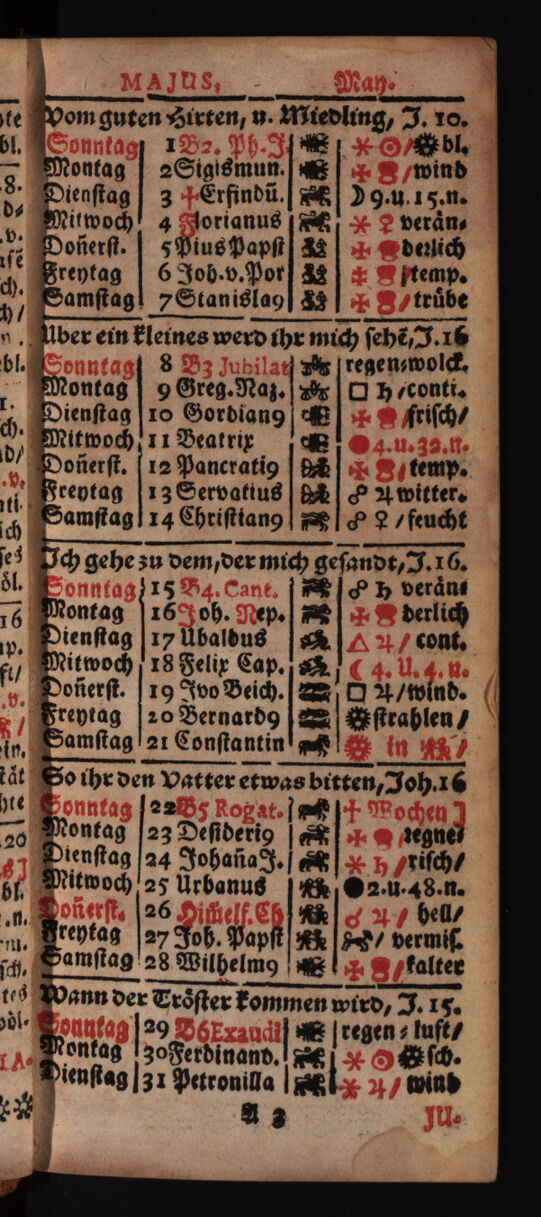 MAJUS, May.
Vom guten Hirten, u. Miedling, J. 10.
Sonntag 1 B2. Ph. J. ⚹ ☉ / bl.
Montag 2 Sigismun. / wind
Dienstag 3 Erfindū. ☽ 9. u. 15. n.
Mitwoch 4 Florianus ⚹ ♀ verän⸗
Doñerst. 5 Pius Papst derlich
Freytag 6 Joh. v. Por / temp.
Samstag 7 Stanislaꝰ / trübe
Uber ein kleines werd ihr mich sehē, J. 16
Sonntag 8 B3 Jubilat regen⸗wolck.
Montag 9 Greg. Naz. □ ♄ / conti.
Dienstag 10 Gordianꝰ / frisch /
Mitwoch 11 Beatrix ● 4. u. 32. n.
Doñerst. 12 Pancratiꝰ / temp.
Freytag 13 Servatius ☍ ♃ witter.
Samstag 14 Christianꝰ ☍ ♀ / feucht
Ich gehe zu dem, der mich gesandt, J. 16.
Sonntag 15 B4. Cant. ☍ ♄ verän⸗
Montag 16 Joh. Nep. derlich
Dienstag 17 Ubaldus △ ♃ / cont.
Mitwoch 18 Felix Cap. ☾ 4. U. 4. n.
Doñerst. 19 Ivo Beich. □ ♃ / wind.
Freytag 20 Bernardꝰ strahlen /
Samstag 21 Constantin in /
So ihr den Vatter etwas bitten, Joh. 16
Sonntag 22 B5 Rogat. † Wochen J
Montag 23 Desideriꝰ / regnet
Dienstag 24 Johaña J. ⚹ ♄ / risch /
Mitwoch 25 Urbanus ● 2. u. 48. n.
Doñerst. 26 Him̄elf. Ch ☌ ♃ / hell /
Freytag 27 Joh. Papst / vermis.
Samstag 28 Wilhelmꝰ / kalter
Wann der Tröster kommen wird, J. 15.
Sonntag 29 B6 Exaudi regen⸗luft /
Montag 30 Ferdinand. ⚹ ☉ sch.
Dienstag 31 Petronilla ⚹ ♃ / wind
A 3 JU.